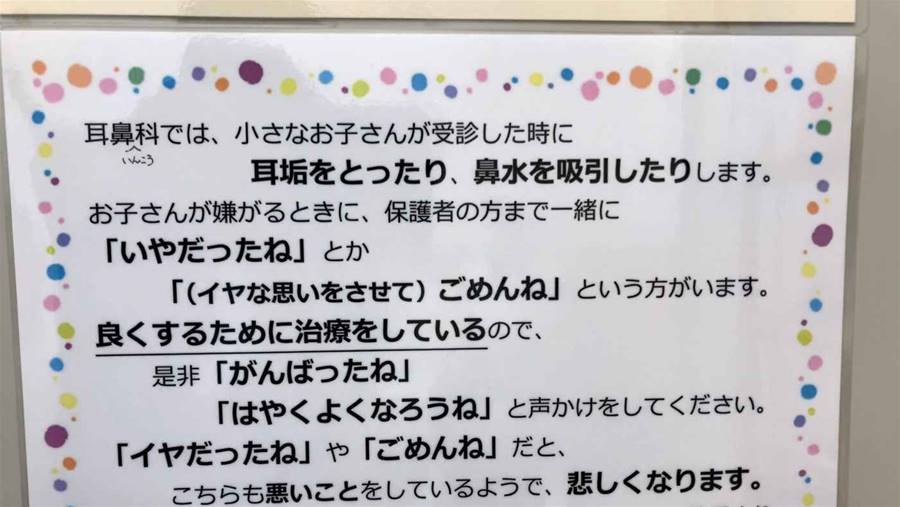 耳鼻科では、小さなお子さんが受診した時に
いんこう
耳垢をとったり、鼻水を吸引したりします。
お子さんが嫌がるときに、保護者の方まで一緒に
「いやだったね」とか
「（イヤな思いをさせて）ごめんね」という方がいます。
良くするために治療をしているので、
是非「がんばったね」
「はやくよくなろうね」と声かけをしてください。
「イヤだったね」や「ごめんね」だと、
こちらも悪いことをしているようで、悲しくなります。